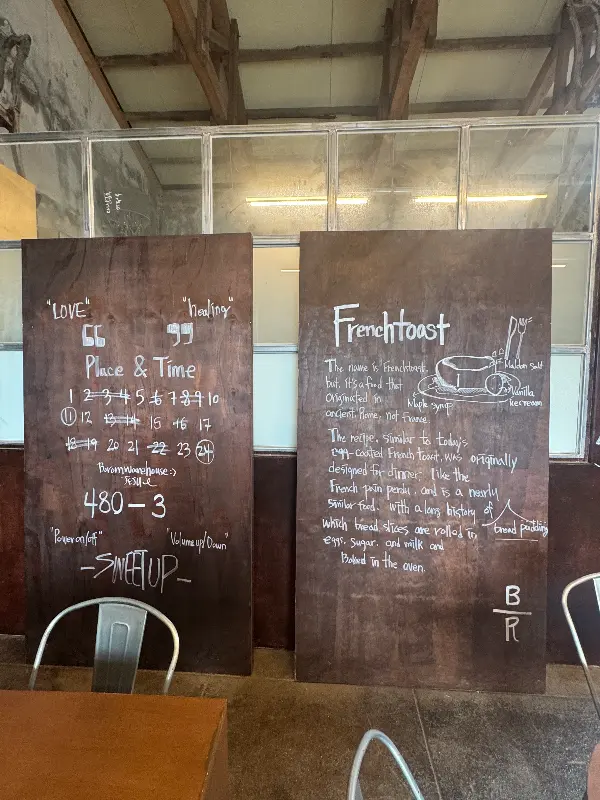 "LOVE"
"healing"
Place & Time
1 2 3 4 5 6 7 8 9 10
11 12 13 14 15 16 17
18 19 20 21 22 23 24
480-3
"Power on/off"
"Volume up/Down"
-SWEET UP-
Frenchtoast
The name is 'Frenchtoast,
but, it's a food that
originated in
ancient Rome, not France
Maldon salt
Vanilla
icecream
Maple syrup
The recipe, similar to today's
egg-coated French toast, was originally
designed for dinner. Like the
French pain perdu, and is a nearly
similar food. with a long history of
bread pudding
which bread slices are rolled in
eggs, sugar, and milk and
Baked in the oven.
B
R